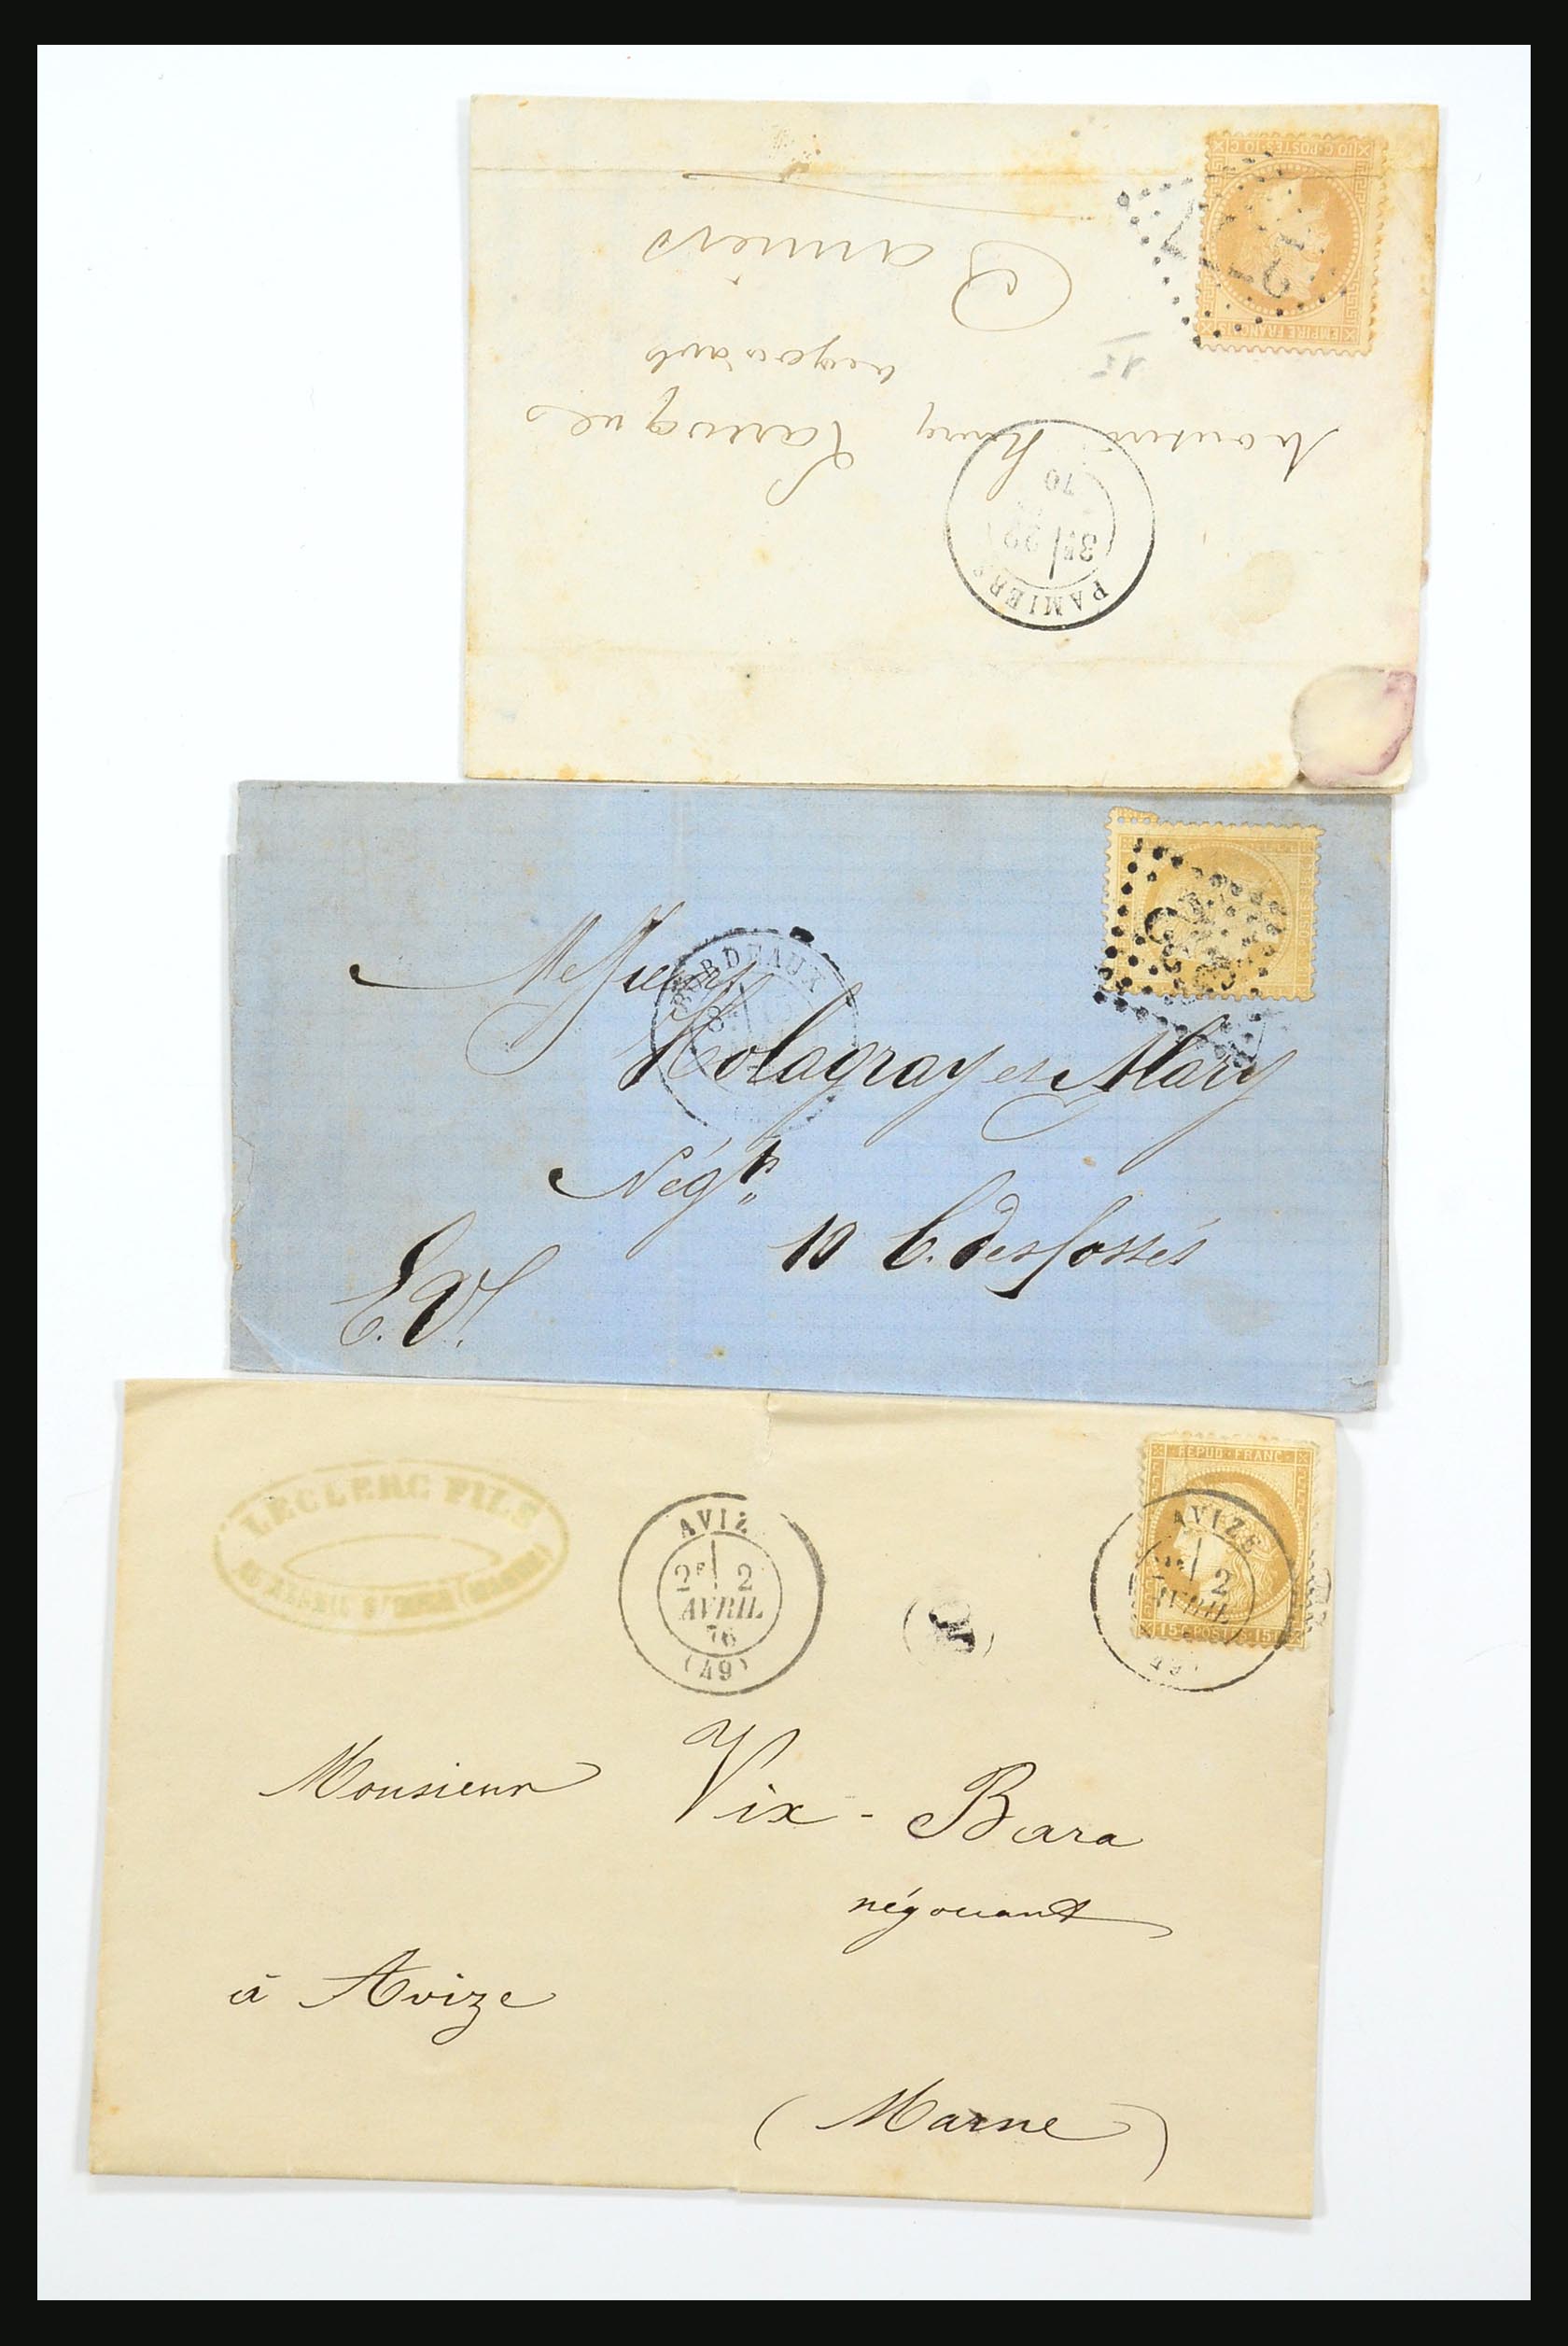 10 C POSTES 10 C
EMPIRE FRANÇAIS
Pamiers
Larroque
PAMIERS
3E 22
70
BORDEAUX
8E
Messieurs
Molagray et Alary
Négts
10 C. des fossés
E.V.
REPUB FRANC
15 C POSTES 15 C
LECLERC FILS
AVIZE
2E 2
AVRIL
76
(49)
AVIZE
2
AVRIL
(49)
Monsieur Vix-Bara
négociant
à Avize
(Marne)